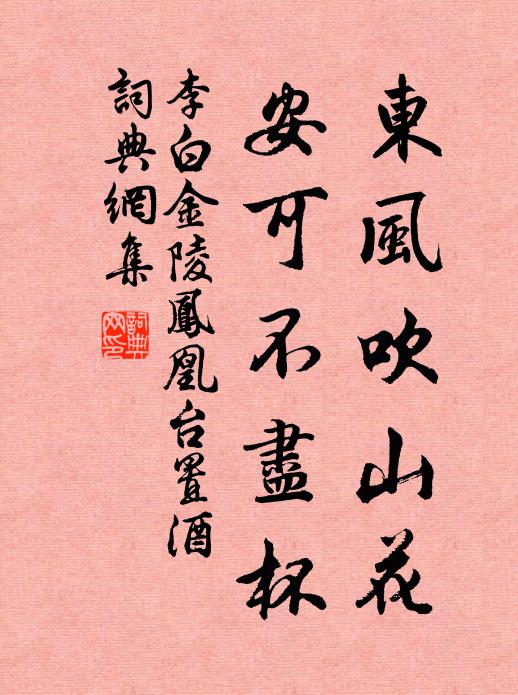 東風吹山花
安可不盡杯
李白金陵鳳凰台置酒
詞典網集
詞典網印